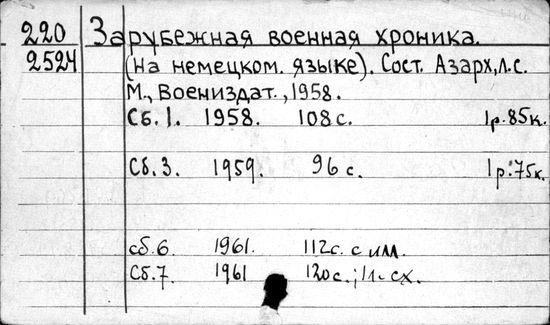 220 Зарубежная военная хроника.
2524 (на немецком. языке). Сост. Азарх, л.с.
М., Воениздат., 1958.
Сб. 1. 1958. 108 с. 1р. 85к.
Сб. 3. 1959. 96 с. 1р. 75к.
сб. 6. 1961. 112с. с илл.
Сб. 7. 1961 120с.; 1л. сх.